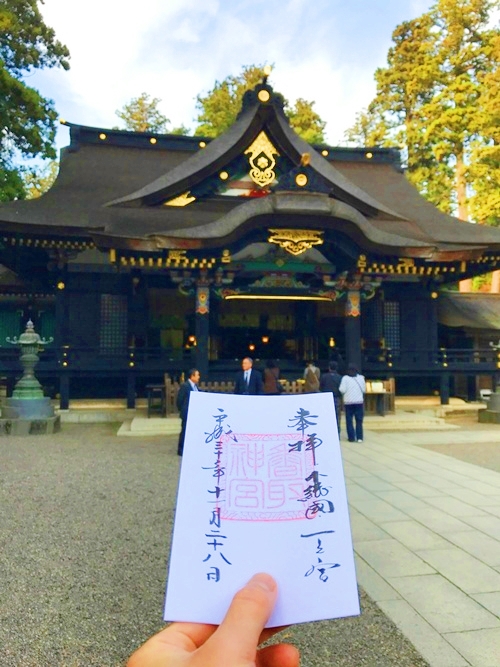 奉拝 下総國 一之宮
香取神宮
平成三十年十一月二十八日